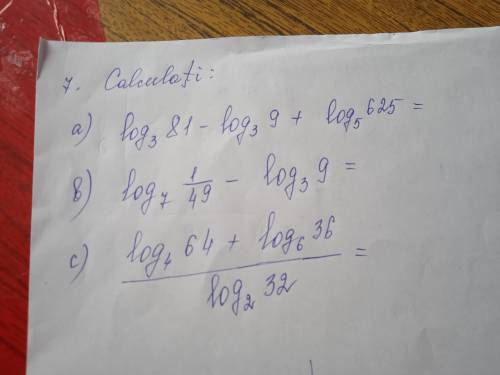 7. Calculați:
a) log₃ 81 - log₃ 9 + log₅ 625 =
b) log₇ 1/49 - log₃ 9 =
c) (log₄ 64 + log₆ 36) / log₂ 32 =